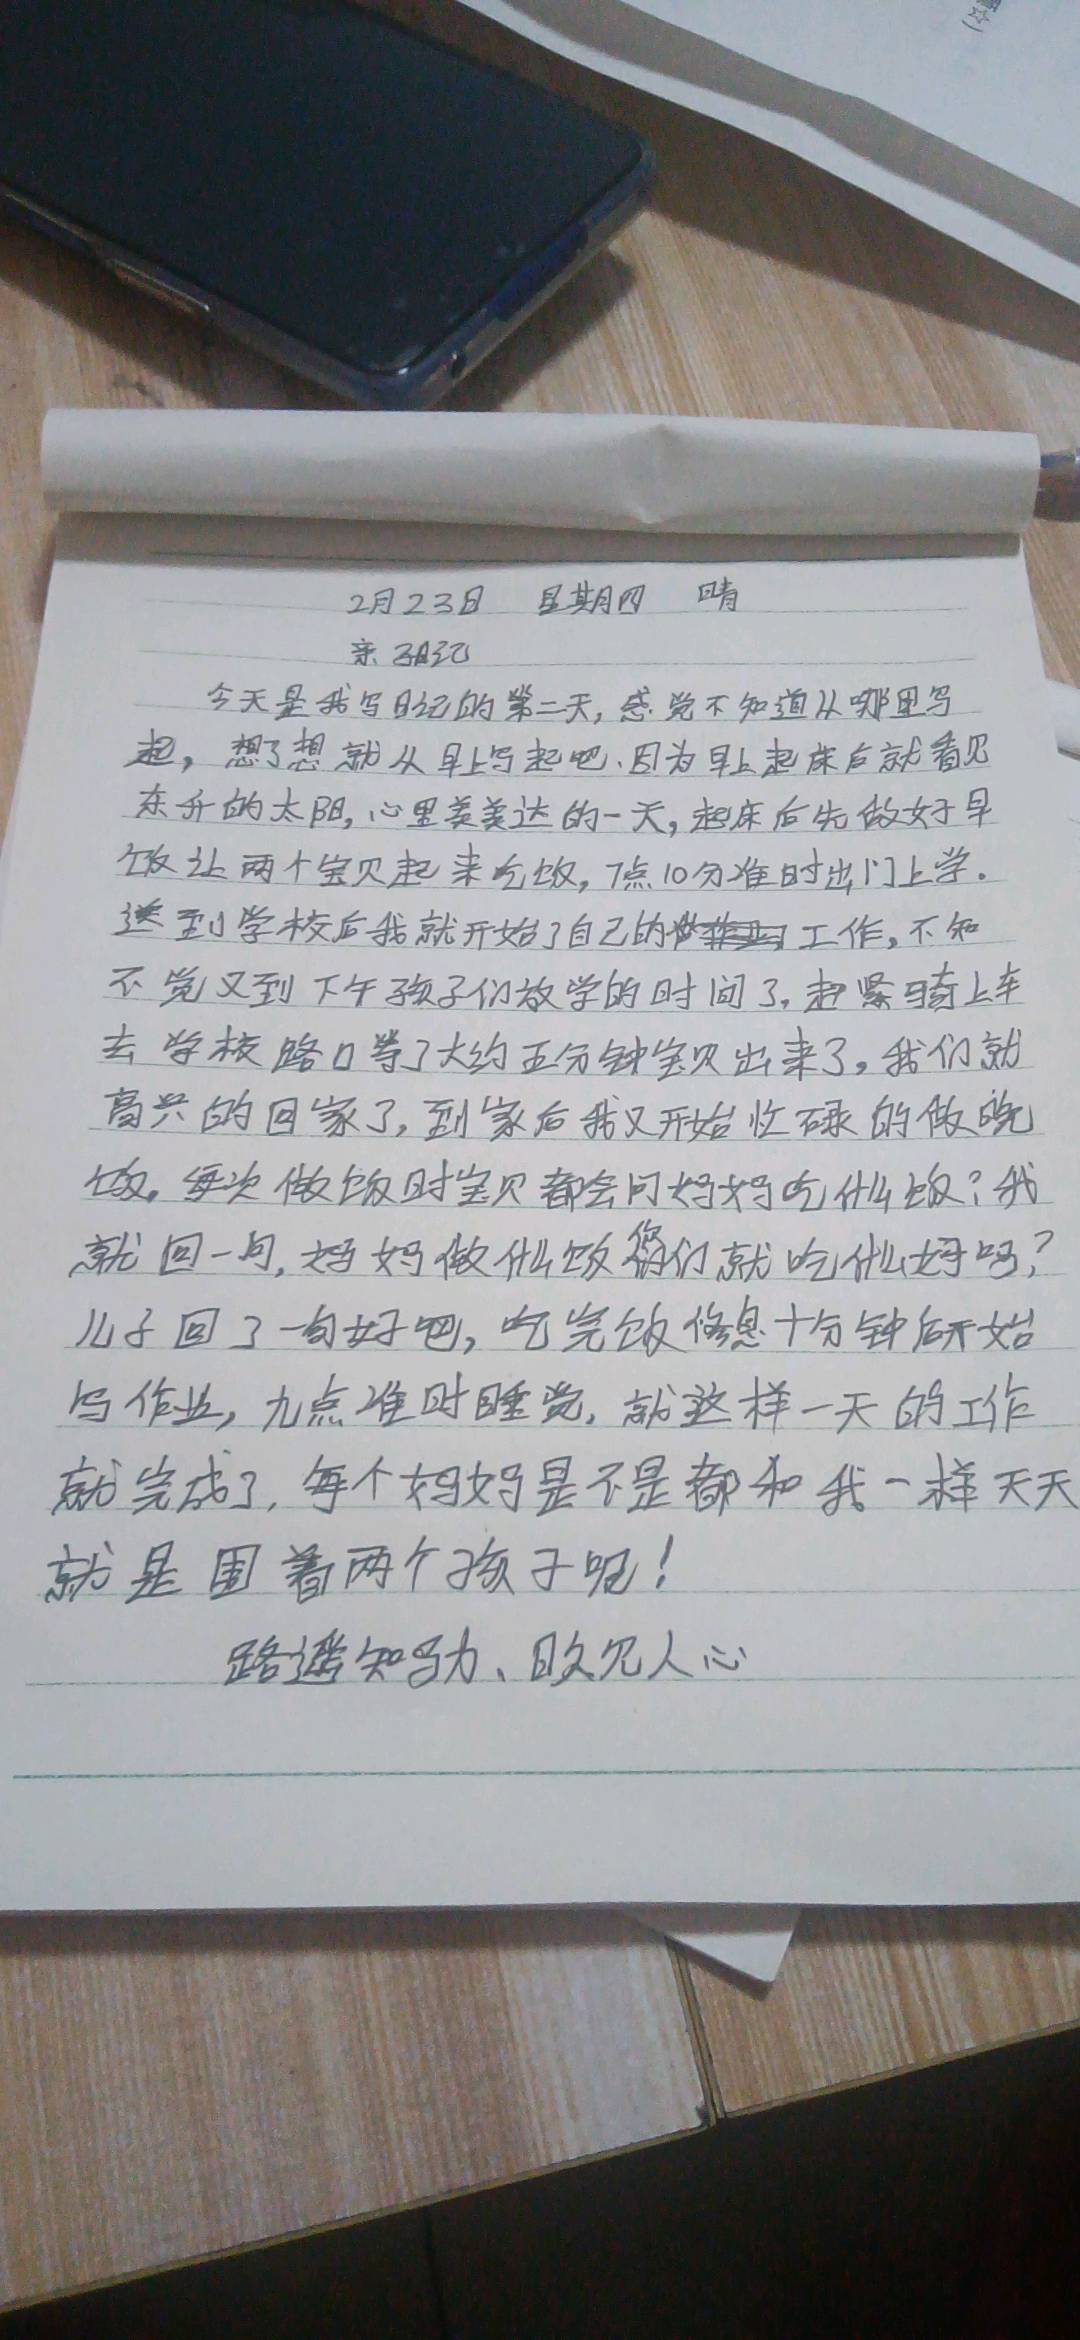 2月23日 星期四 晴
亲子日记
今天是我写日记的第二天,感觉不知道从哪里写
起,想了想就从早上写起吧.因为早上起床后就看见
东升的太阳,心里美美达的一天,起床后先做好早
饭让两个宝贝起来吃饭,7点10分准时出门上学.
送到学校后我就开始了自己的工作,不知
不觉又到下午孩子们放学的时间了,赶紧骑上车
去学校路口等了大约五分钟宝贝出来了。我们就
高兴的回家了,到家后我又开始忙碌的做晚
饭。每次做饭时宝贝都会问妈妈吃什么饭?我
就回一句,妈妈做什么饭你们就吃什么好吗?
儿子回了一句好吧,吃完饭修息十分钟后开始
写作业,九点准时睡觉,就这样一天的工作
就完成了,每个妈妈是不是都和我一样天天
就是围着两个孩子呢!
路遥知马力、日久见人心